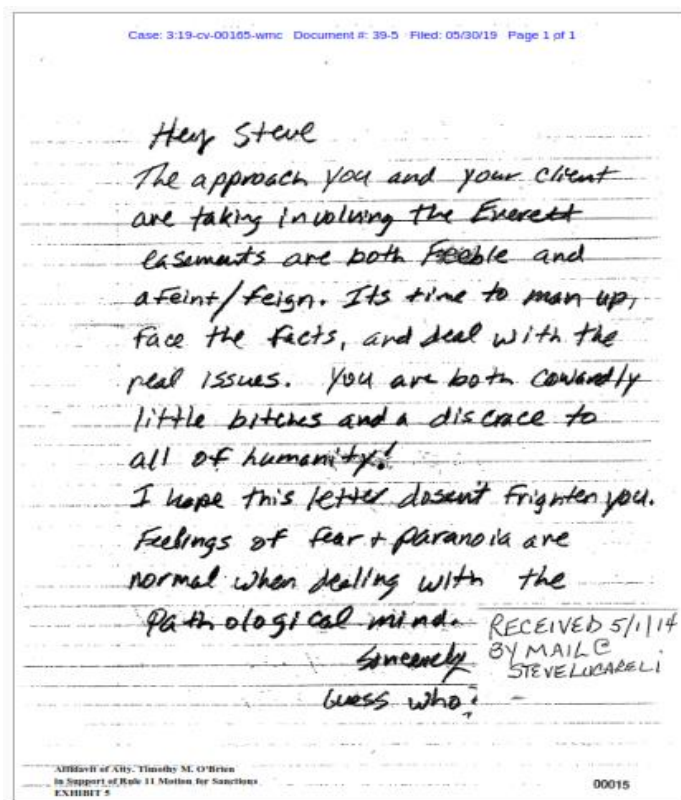 Case: 3:19-cv-00165-wmc Document #: 39-5 Filed: 05/30/19 Page 1 of 1
Hey Steve
The approach you and your client
are taking involving the Everett
easements are both Feeble and
afeint/feign. Its time to man up,
face the facts, and deal with the
real issues. You are both cowardly
little bitches and a discrace to
all of humanity!
I hope this letter dosent frighten you.
Feelings of fear + paranoia are
normal when dealing with the
pathological mind.
Sincerely
Guess who?
RECEIVED 5/1/14
BY MAIL @
STEVE LUCARELI
Affidavit of Atty. Timothy M. O'Brien
in Support of Rule 11 Motion for Sanctions
EXHIBIT 5
00015